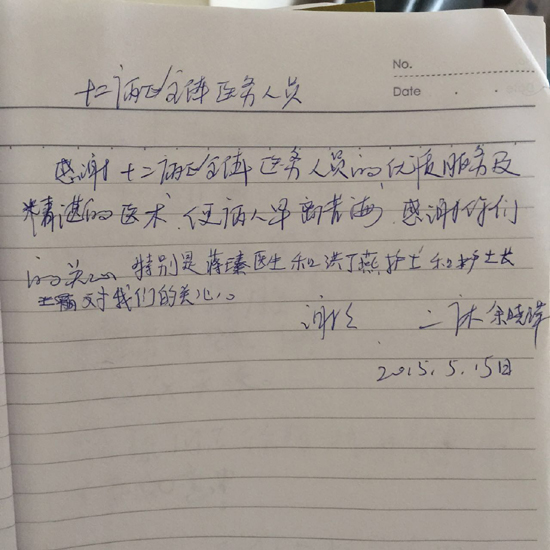 No.
Date
十二病区全体医务人员
感谢十二病区全体医务人员的优质服务及
精湛的医术,使病人早离苦海,感谢你们
的关心,特别是蒋臻医生和洪丁燕护士和护士长
对我们的关心。
谢谢 二床余晓萍
2015.5.15日